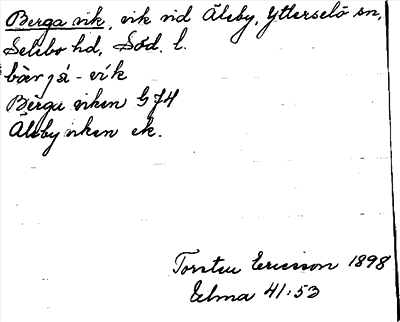 Berga vik, vik vid Älsby, Ytterselö sn,
Selebo hd, Söd. l.
Berga viken G74
Älsby viken ek.
Torsten Ericsson 1898
41:53